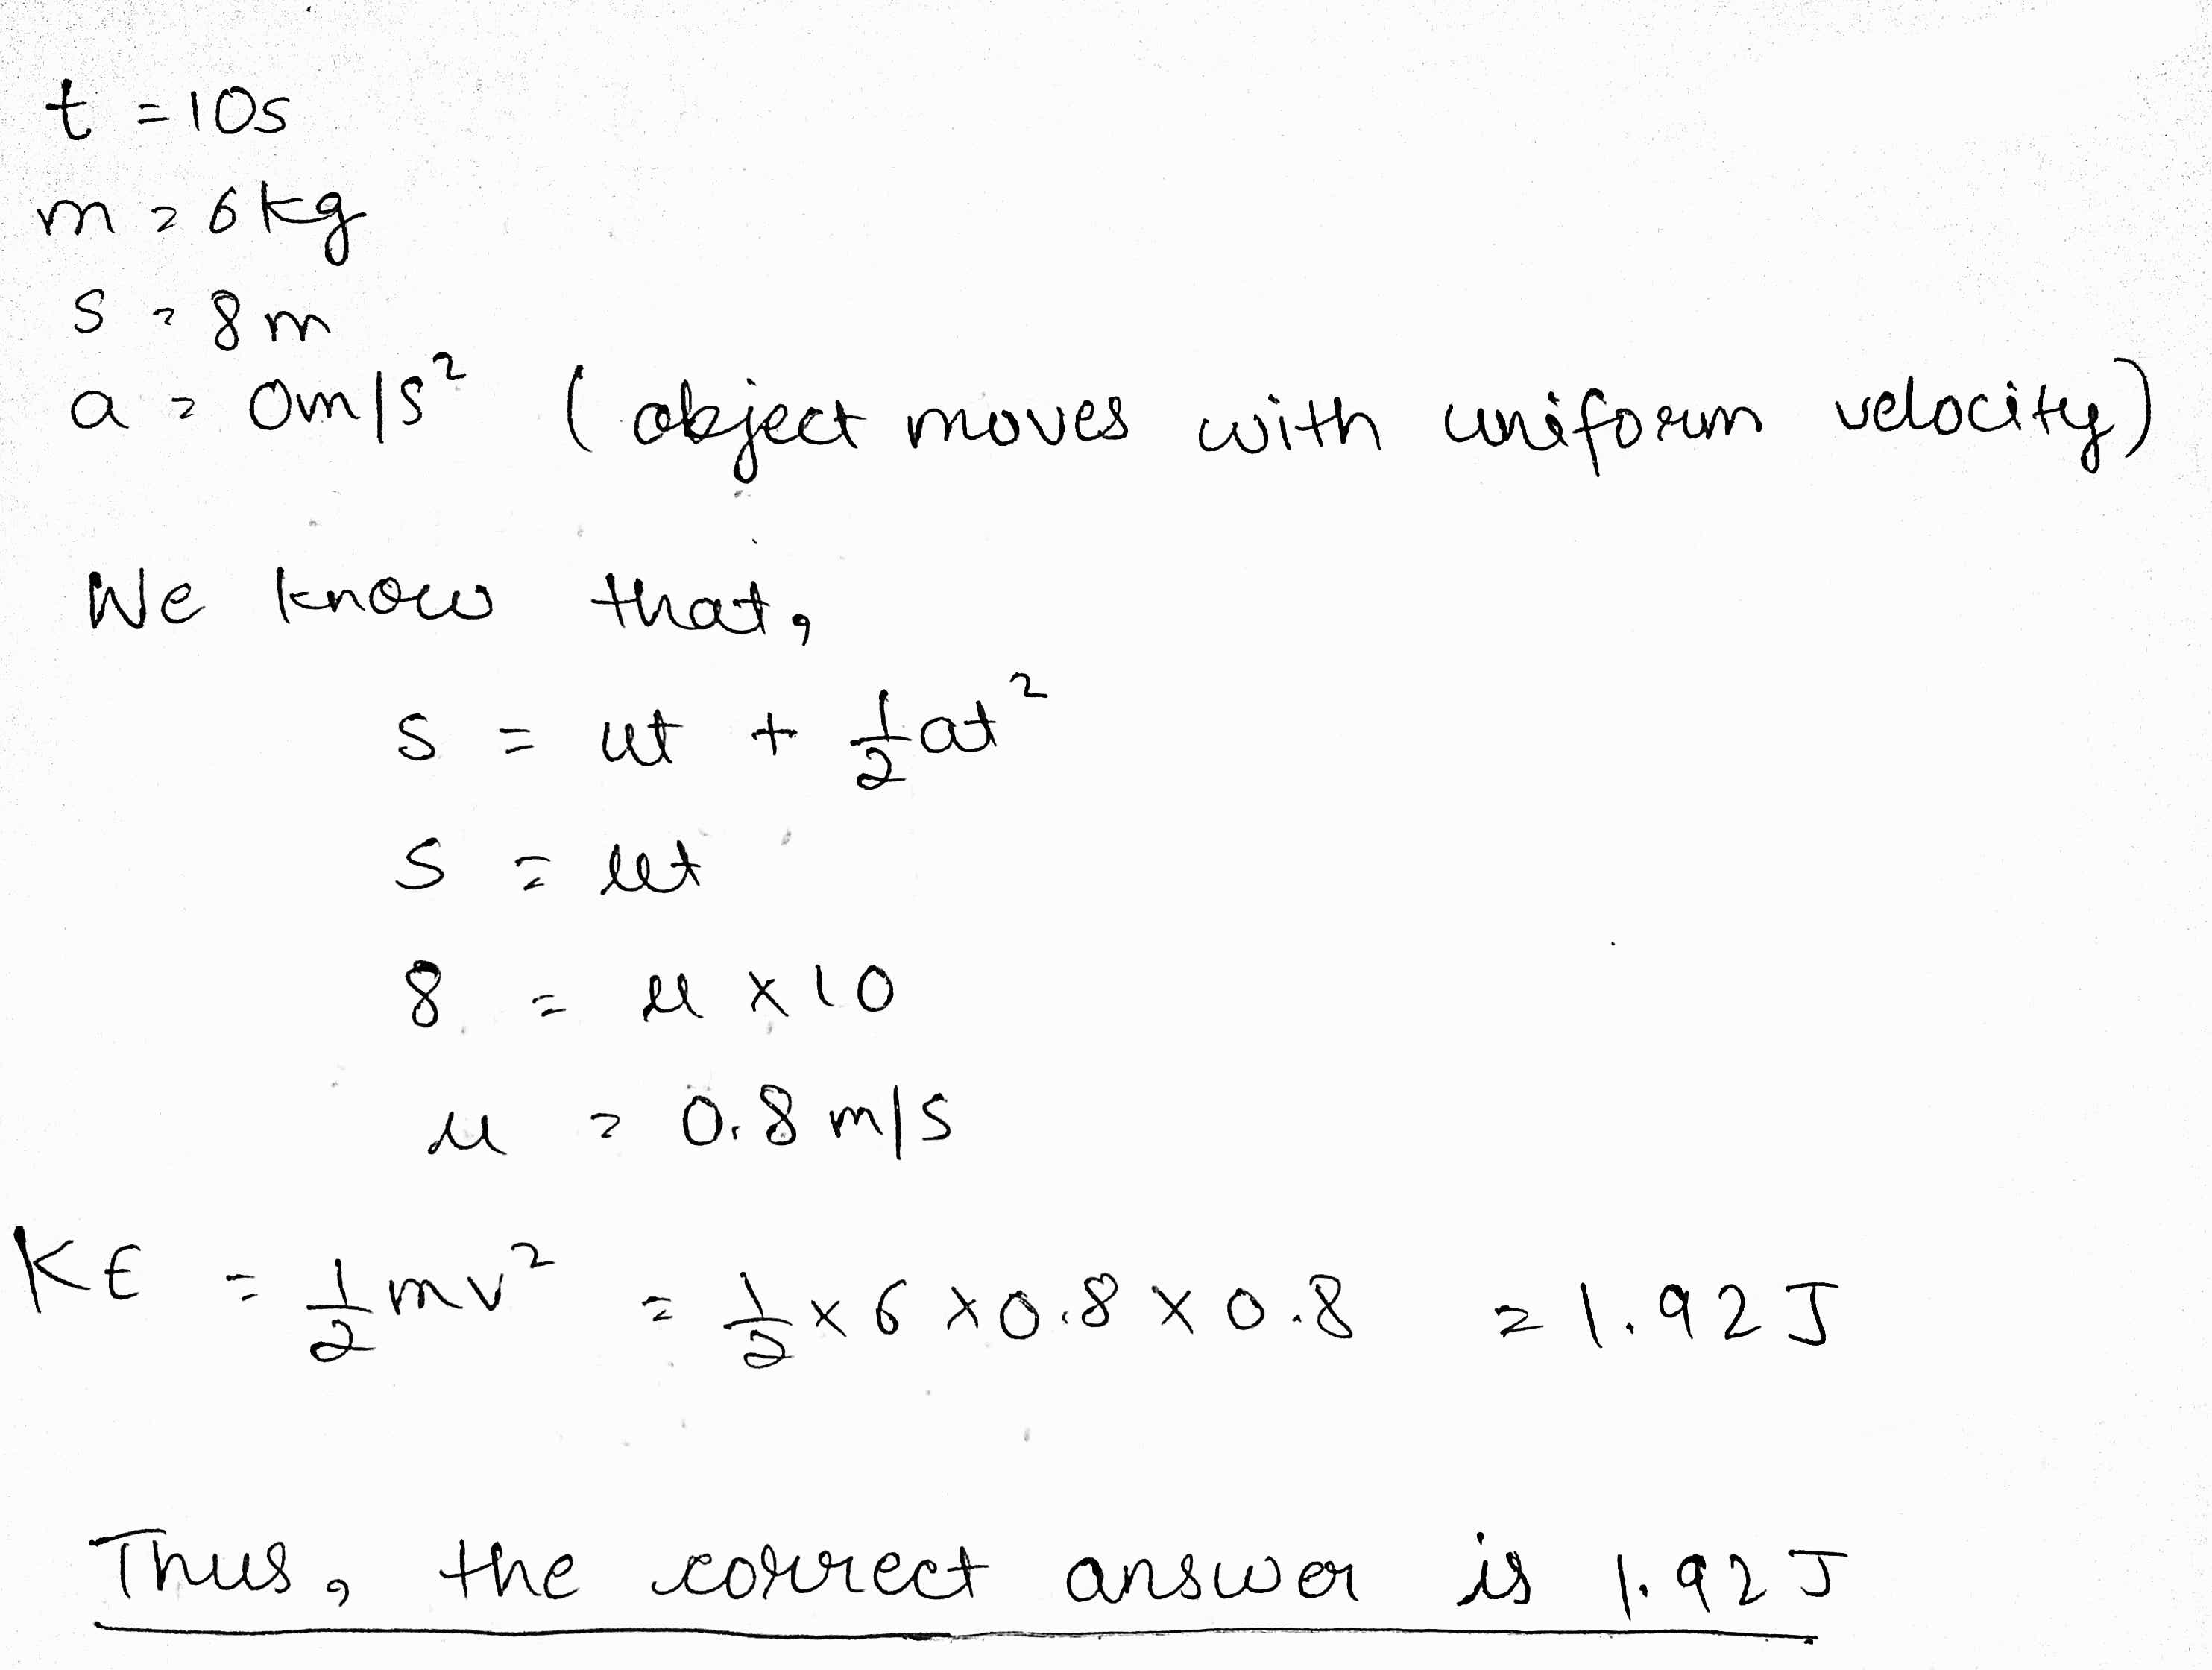 t = 10s
m = 6kg
s = 8m
a = 0m/s² (object moves with uniform velocity)
We know that,
s = ut + ½at²
s = ut
8 = u × 10
u = 0.8 m/s
KE = ½mv² = ½ × 6 × 0.8 × 0.8 = 1.92 J
Thus, the correct answer is 1.92 J